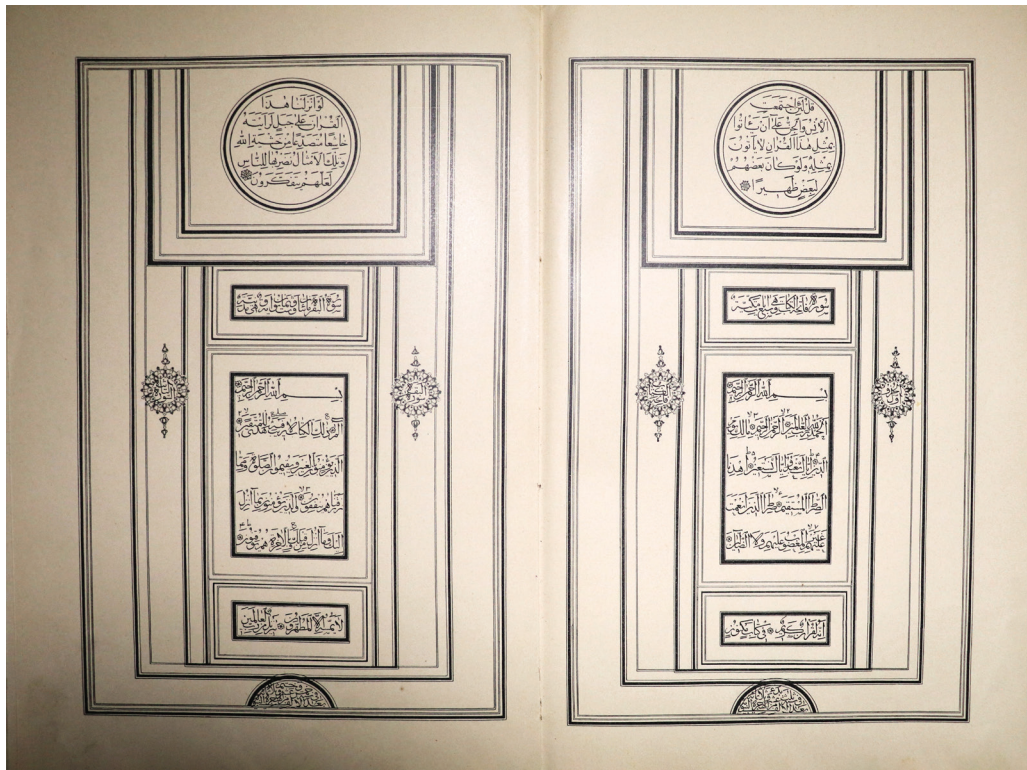 قل لئن اجتمعت
الانس والجن على ان ياتوا
بمثل هذا القران لا ياتون
بمثله ولو كان بعضهم
لبعض ظهيرا
بسم الله الرحمن الرحيم
الحمد لله رب العالمين الرحمن الرحيم مالك يوم
الدين اياك نعبد واياك نستعين اهدنا
الصراط المستقيم صراط الذين انعمت
عليهم غير المغضوب عليهم ولا الضالين
انه لقران كريم في كتاب مكنون
لو انزلنا هذا
القران على جبل لرايته
خاشعا متصدعا من خشية الله
وتلك الامثال نضربها للناس
لعلهم يتفكرون
بسم الله الرحمن الرحيم
الم ذلك الكتاب لا ريب فيه هدى للمتقين
الذين يؤمنون بالغيب ويقيمون الصلوة ومما
رزقناهم ينفقون والذين يؤمنون بما انزل
اليك وما انزل من قبلك وبالاخرة هم يوقنون
لا يمسه الا المطهرون تنزيل من رب العالمين